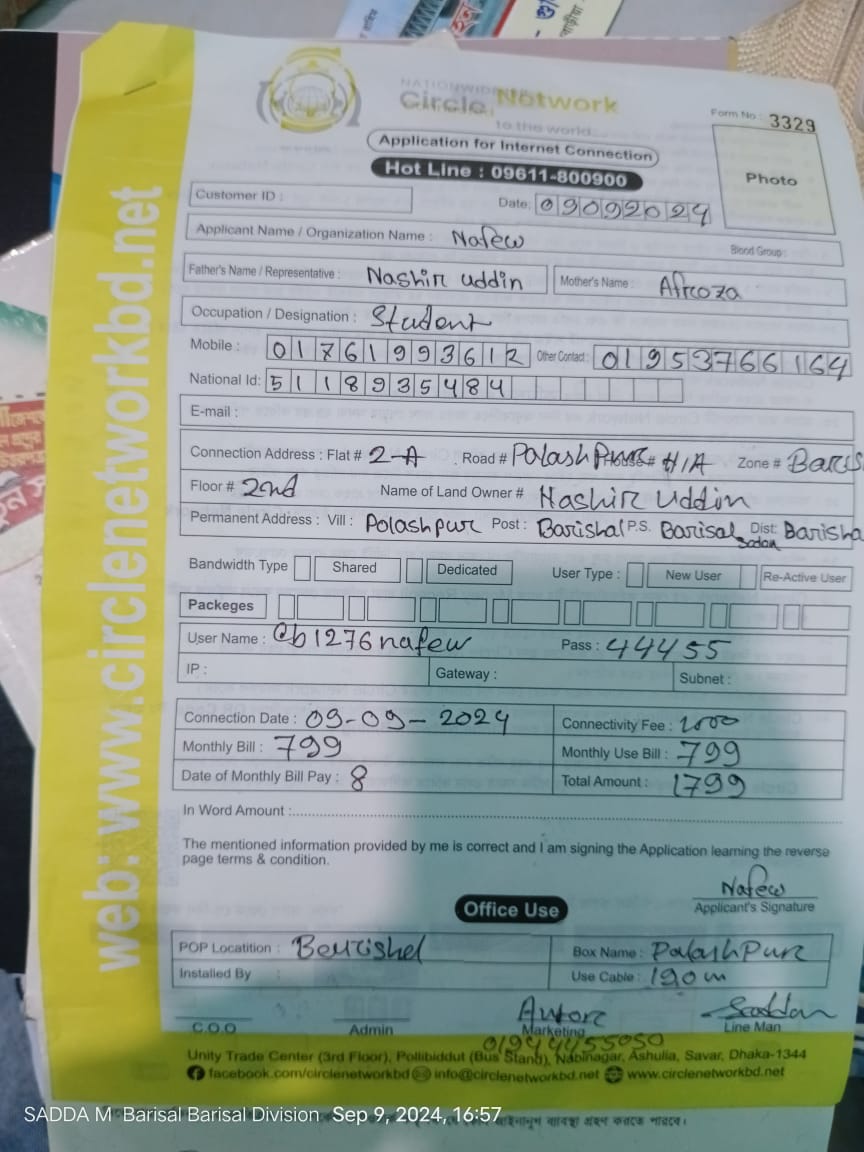 NATIONWIDE
Circle Network
to the world
Form No : 3329
Application for Internet Connection
Hot Line : 09611-800900
Photo
Customer ID :
Date: 09092024
Applicant Name / Organization Name : Nafew
Blood Group:
Father's Name / Representative : Nashir uddin Mother's Name : Afroza
Occupation / Designation : Student
Mobile : 01761993612 Other Contact : 01953766164
National Id: 5118935484
E-mail :
Connection Address : Flat # 2-A Road # Palash Pur House# H/A Zone # Baris
Floor # 2nd Name of Land Owner # Nashir Uddin
Permanent Address : Vill : Polashpur Post : Barishal P.S. Barisal Sadar Dist: Barisha
Bandwidth Type Shared Dedicated User Type : New User Re-Active User
Packeges
User Name : Cb1276nafew Pass : 44455
IP : Gateway : Subnet :
Connection Date : 09-09-2024 Connectivity Fee : 1000
Monthly Bill : 799 Monthly Use Bill : 799
Date of Monthly Bill Pay : 8 Total Amount : 1799
In Word Amount :
The mentioned information provided by me is correct and I am signing the Application learning the reverse
page terms & condition.
Nafew
Applicant's Signature
Office Use
POP Locatition : Barishal Box Name : PalashPur
Installed By : Use Cable : 190m
Saddam
C.O.O Admin Marketing Line Man
01944455050
Unity Trade Center (3rd Floor), Pollibiddut (Bus Stand), Nabinagar, Ashulia, Savar, Dhaka-1344
facebook.com/circlenetworkbd info@circlenetworkbd.net www.circlenetworkbd.net
web: www.circlenetworkbd.net
SADDA M Barisal Barisal Division Sep 9, 2024, 16:57